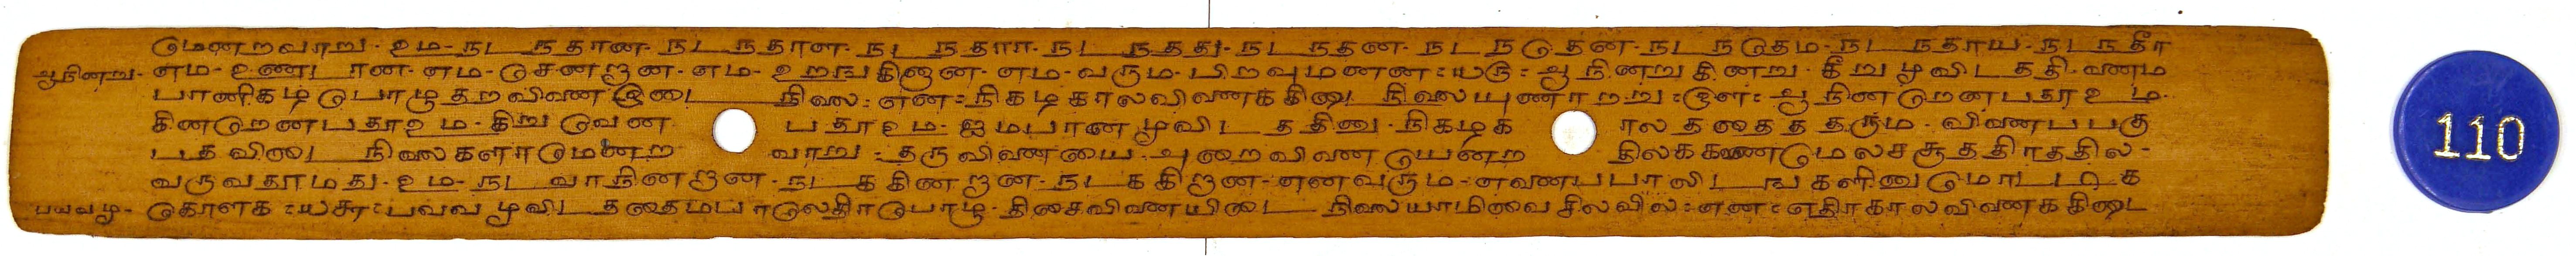 மெனறவாறு. உ ம - நடநதான. நடநதாள. நடநதார. நடநதது. நடநதன. நடநதெதன. நடநதெதம. நடநதாய. நடநதீர
ஆநினறு. எம - உணடான. எம - செனறான. எம - உறஙகினான. எம - வரும. பிறவுமனன : ஆநினறுகினறு. கிறுமூவிடததி. வணம
பாணிகழபொழுதறைவினை இடைநிலை : என : நிகழகாலவினைககிடைநிலையுணாறறு : இள : ஆநினறெனபதூஉம.
கினறெனபதூஉம. கிறுவென பதூஉம. ஐமபானமூவிடததினு. நிகழக ாலததைத தரும. வினைபபகு
பதவிடைநிலைகளாமெனற வாறு : தருவினையை. அறைவினையெனற திலககணமெலசசூததிரததில -
வருவதூமது. உ ம - நடவாநினறான. நடககினறான. நடககிறான. எனவரும. எனையபபாலிடஙகளினுமொடடிக
பவவமூ - கொளக : பவவமூவிடததைமபாலெதிரபொழு. திசைவினையிடைநிலையாமிவை சிலவில : என : எதிரகாலவினைககிடை
110